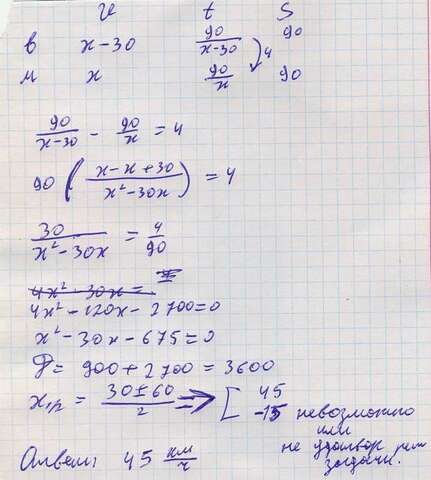 v t S
в x-30 90/(x-30) 90
4
м x 90/x 90
90/(x-30) - 90/x = 4
90 ( (x-x+30)/(x²-30x) ) = 4
30/(x²-30x) = 4/90
4x²-30x=
4x²-120x-2700=0
x²-30x-675=0
D= 900+2700=3600
x1,2 = (30±60)/2 => [ 45
-15 невозможно
или
не удовлетвор.
задачи.
Ответ: 45 км/ч